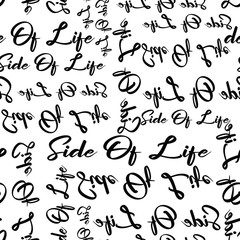 Side Of Life
Side Of Life
Side Of Life
Side Of Life
Side Of Life
Of Life
Side Of Life
Side Of Life
Side Of Life
Side Of Life
Of Life
Side